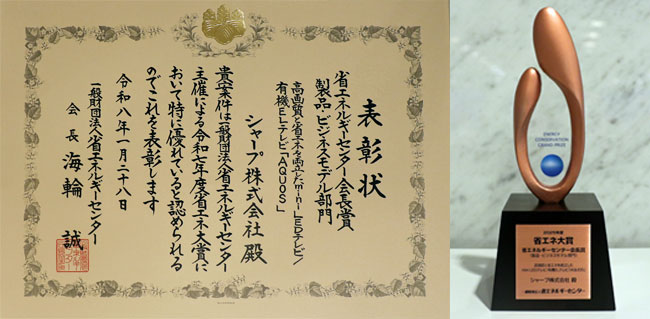 表彰状
省エネルギーセンター会長賞
製品・ビジネスモデル部門
高画質と省エネを両立したmini LEDテレビ/
有機ELテレビ「AQUOS」
シャープ株式会社 殿
貴案件は一般財団法人省エネルギーセンター
主催による令和七年度省エネ大賞に
おいて特に優れていると認められる
のでこれを表彰します
令和八年一月二十八日
一般財団法人省エネルギーセンター
会長 海輪 誠
ENERGY
CONSERVATION
GRAND PRIZE
2025年度
省エネ大賞
省エネルギーセンター会長賞
(製品・ビジネスモデル部門)
シャープ株式会社 殿
省エネルギーセンター